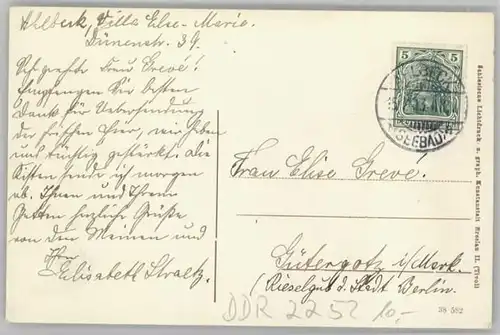 Ahlbeck, Villa Else-Maria.
Dünenstr. 39.
Sehr geehrte Frau Grevé!
Empfangen Sie besten
Dank für Uebersendung
der frischen Eier, wir haben
uns tüchtig gestärkt. Die
Kisten sende ich morgen
ab. Ihnen und Ihrem
Gatten herzliche Grüße
von den Meinen und
Ihrer
Elisabeth
5 5
SEEBAD
Frau Elise Grevé.
Gütergotz i/Mark.
(Rieselgut d. Stadt Berlin.
DDR 2252 10,-
Schlesische Lichtdruck- u. graph. Kunstanstalt Breslau II. (Tivoli)